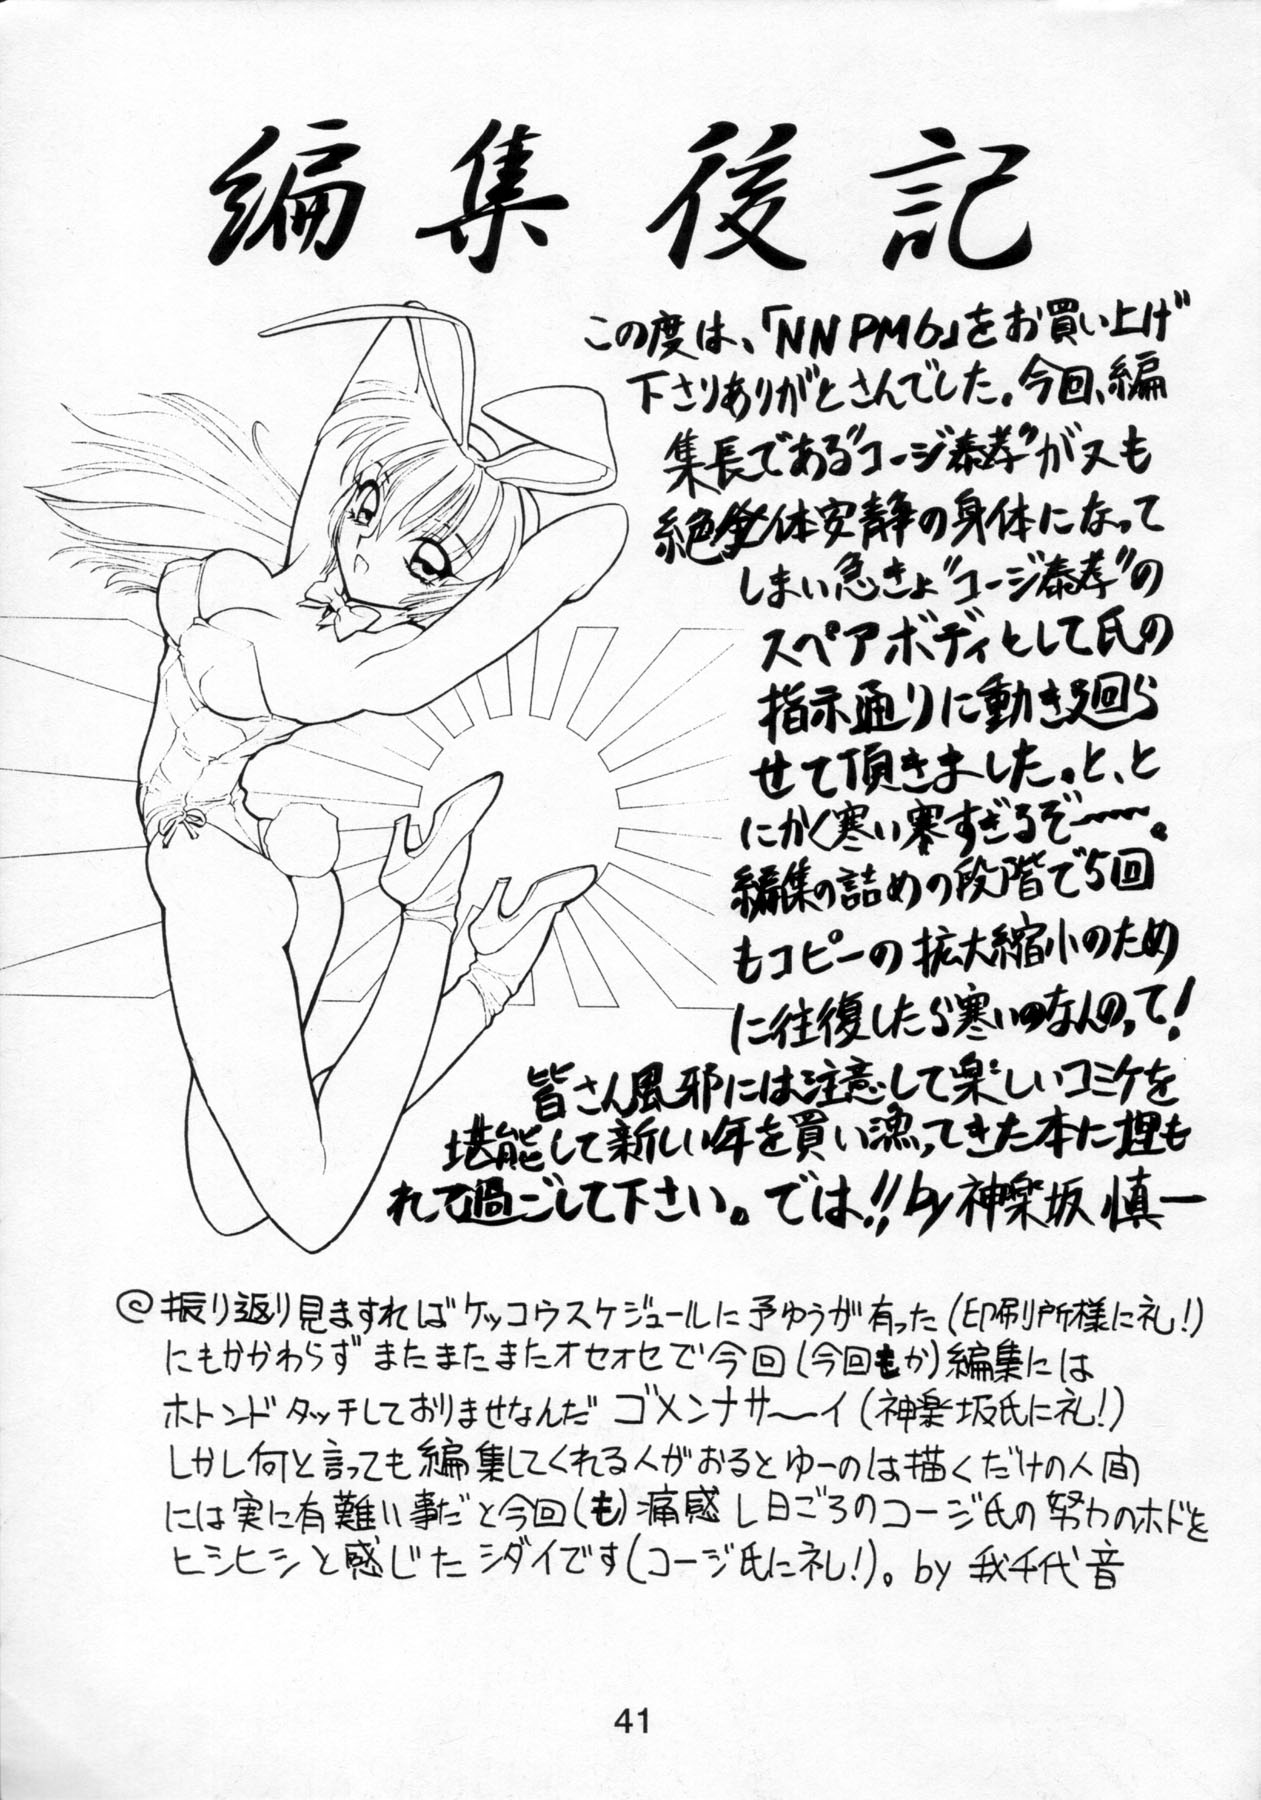 編集後記
この度は、「NNPM6」をお買い上げ
下さりありがとさんでした。今回、編
集長である"コージ泰孝"が又も
絶体安静の身体になって
しまい急きょ"コージ泰孝"の
スペアボディとして氏の
指示通りに動き廻ら
せて頂きました。と、と
にかく寒い寒すぎるぞ〜〜。
編集の詰めの段階で5回
もコピーの拡大縮小のため
に往復したら寒いのなんのって!
皆さん風邪には注意して楽しいコミケを
堪能して新しい年を買い漁ってきた本に埋も
れて過ごして下さい。では!! by 神楽坂 慎一
@振り返り見ますればケッコウスケジュールに予ゆうが有った(印刷所様に礼!)
にもかかわらずまたまたまたオセオセで今回(今回もか)編集には
ホトンドタッチしておりませなんだ ゴメンナサ〜イ(神楽坂氏に礼!)
しかし何と言っても編集してくれる人がおるとゆーのは描くだけの人間
には実に有難い事だと今回(も)痛感し日ごろのコージ氏の努力のホドを
ヒシヒシと感じたシダイです(コージ氏に礼!)。by 我千代音
41